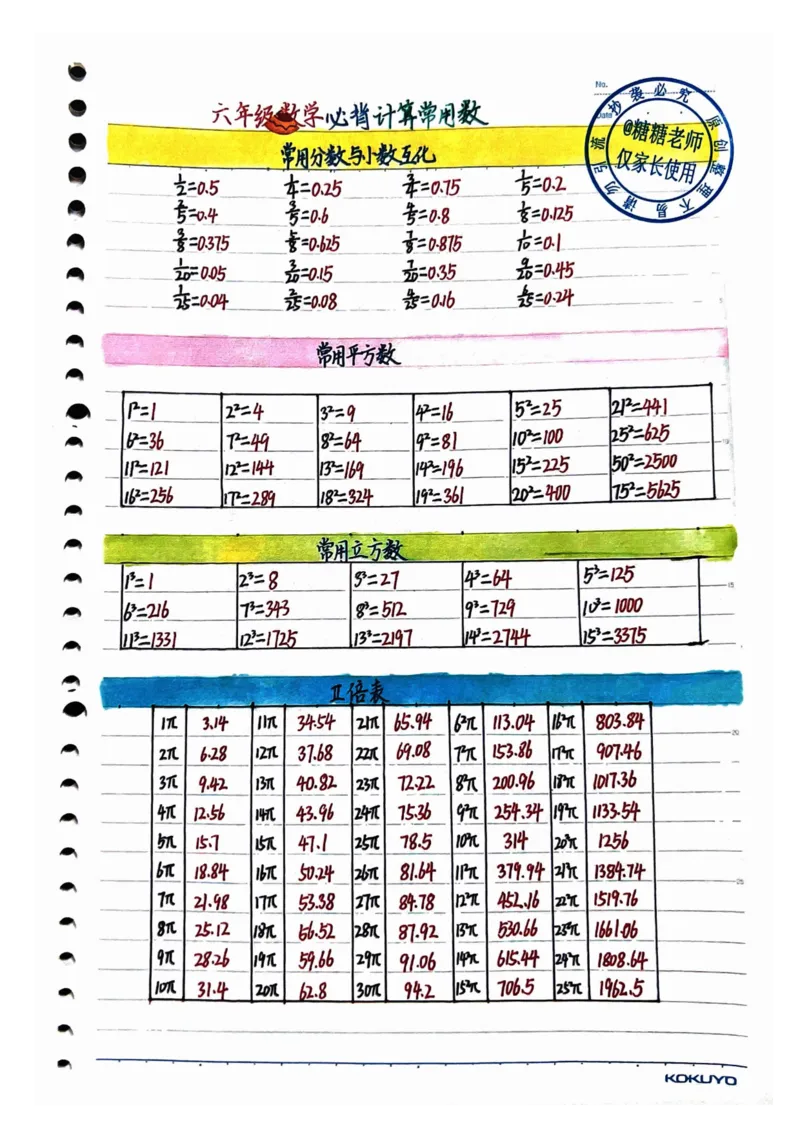 No.
Date
抄袭必究 原创整理不易请勿引流
@糖糖老师
仅家长使用
六年级数学必背计算常用数
常用分数与小数互化
1/2=0.5 1/4=0.25 3/4=0.75 1/5=0.2
2/5=0.4 3/5=0.6 4/5=0.8 1/8=0.125
3/8=0.375 5/8=0.625 7/8=0.875 1/10=0.1
1/20=0.05 3/20=0.15 7/20=0.35 9/20=0.45
1/25=0.04 2/25=0.08 4/25=0.16 6/25=0.24
常用平方数
1²=1 2²=4 3²=9 4²=16 5²=25 21²=441
6²=36 7²=49 8²=64 9²=81 10²=100 25²=625
11²=121 12²=144 13²=169 14²=196 15²=225 50²=2500
16²=256 17²=289 18²=324 19²=361 20²=400 75²=5625
常用立方数
1³=1 2³=8 3³=27 4³=64 5³=125
6³=216 7³=343 8³=512 9³=729 10³=1000
11³=1331 12³=1725 13³=2197 14³=2744 15³=3375
Π倍表
1π 3.14 11π 34.54 21π 65.94 6²π 113.04 16²π 803.84
2π 6.28 12π 37.68 22π 69.08 7²π 153.86 17²π 907.46
3π 9.42 13π 40.82 23π 72.22 8²π 200.96 18²π 1017.36
4π 12.56 14π 43.96 24π 75.36 9²π 254.34 19²π 1133.54
5π 15.7 15π 47.1 25π 78.5 10²π 314 20²π 1256
6π 18.84 16π 50.24 26π 81.64 11²π 379.94 21²π 1384.74
7π 21.98 17π 53.38 27π 84.78 12²π 452.16 22²π 1519.76
8π 25.12 18π 56.52 28π 87.92 13²π 530.66 23²π 1661.06
9π 28.26 19π 59.66 29π 91.06 14²π 615.44 24²π 1808.64
10π 31.4 20π 62.8 30π 94.2 15²π 706.5 25²π 1962.5
KOKUYO